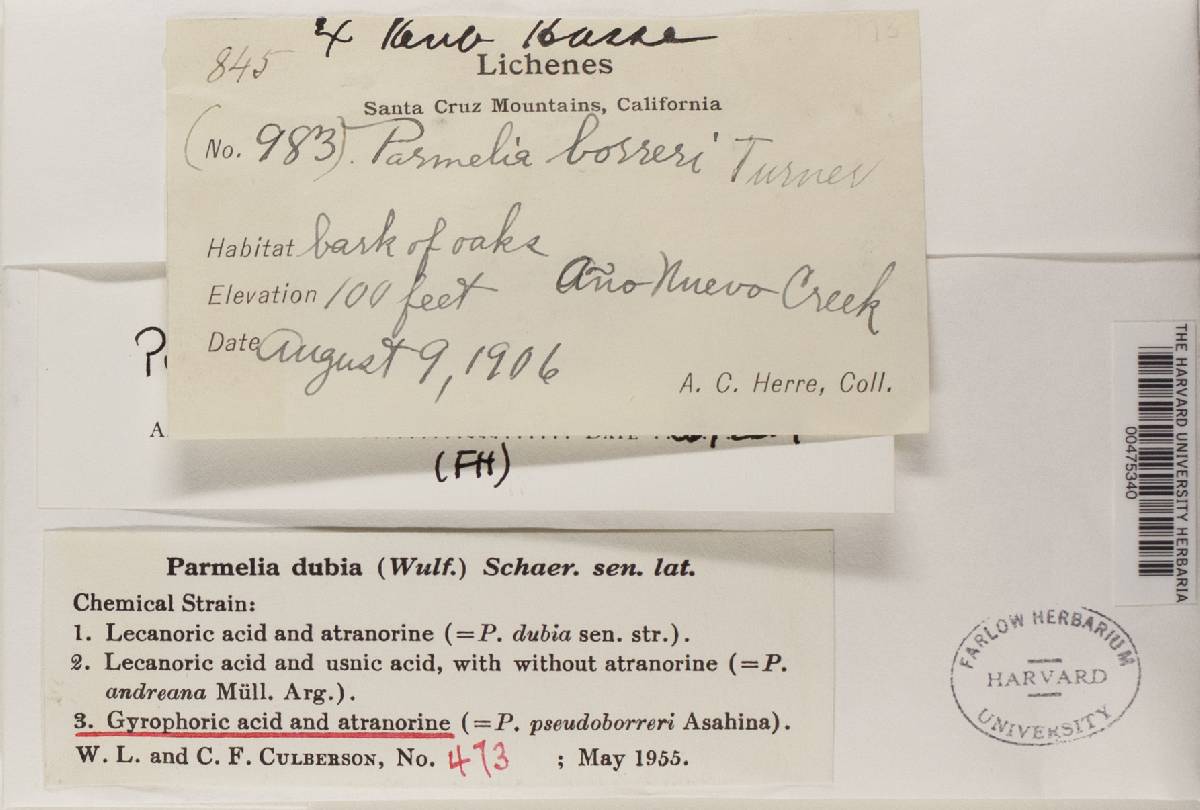 ex Herb Hasse
845
Lichenes
Santa Cruz Mountains, California
(No. 983). Parmelia borreri Turner
Habitat bark of oaks
Elevation 100 feet Año Nuevo Creek
Date August 9, 1906
A. C. Herre, Coll.
(FH)
Parmelia dubia (Wulf.) Schaer. sen. lat.
Chemical Strain:
1. Lecanoric acid and atranorine (=P. dubia sen. str.).
2. Lecanoric acid and usnic acid, with without atranorine (=P.
andreana Müll. Arg.).
3. Gyrophoric acid and atranorine (=P. pseudoborreri Asahina).
W. L. and C. F. Culberson, No. 473 ; May 1955.
THE HARVARD UNIVERSITY HERBARIA
00475340
FARLOW HERBARIUM
HARVARD
UNIVERSITY